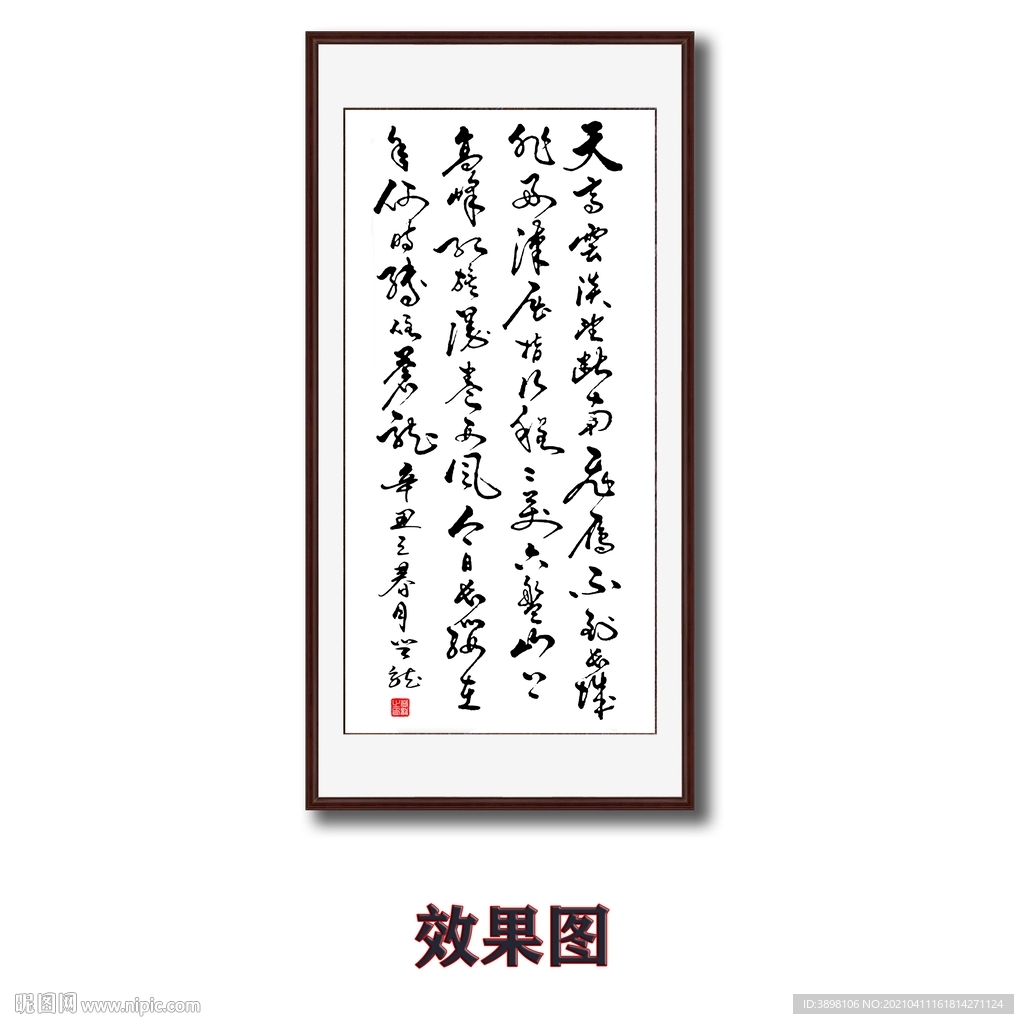 天高雲淡望斷南飛雁不到長城
非好漢屈指行程二萬六盤山上
高峰紅旗漫卷西風今日長纓在
手何時縛住蒼龍辛丑之春月龍
效果图
昵图网 www.nipic.com
ID:3898106 NO:20210411161814271124